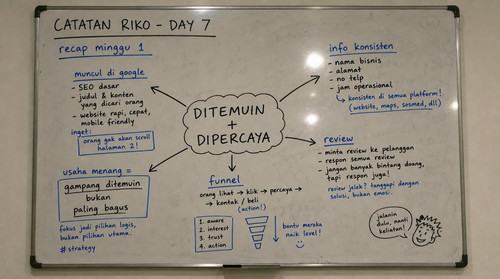 CATATAN RIKO - DAY 7
recap minggu 1
muncul di google
- SEO dasar
- judul & konten
yang dicari orang
- website rapi, cepat,
mobile friendly
inget:
orang gak akan scroll
halaman 2!
info konsisten
- nama bisnis
- alamat
- no telp
- jam operasional
↳ konsisten di semua platform!
(website, maps, sosmed, dll)
DITEMUIN
+
DIPERCAYA
review
- minta review ke pelanggan
- respon semua review
- jangan banyak bintang doang,
tapi respon juga!
review jelek? tanggapi dengan
solusi, bukan emosi.
usaha menang =
gampang ditemuin
bukan
paling bagus
fokus jadi pilihan logis,
bukan pilihan utama.
# strategy
funnel
orang lihat → klik → percaya →
→ kontak / beli
(action!)
1. aware
2. interest
3. trust
4. action
bantu mereka
naik level!
jalanin
dulu, nanti
keliatan!